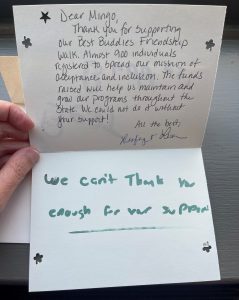 Dear Mingo,
Thank you for supporting
our Best Buddies Friendship
Walk. Almost 900 individuals
registered to spread our mission of
acceptance and inclusion. The funds
raised will help us maintain and
grow our programs throughout the
State. We could not do it without
your support!
All the best,
We can't Thank You
enough for your support